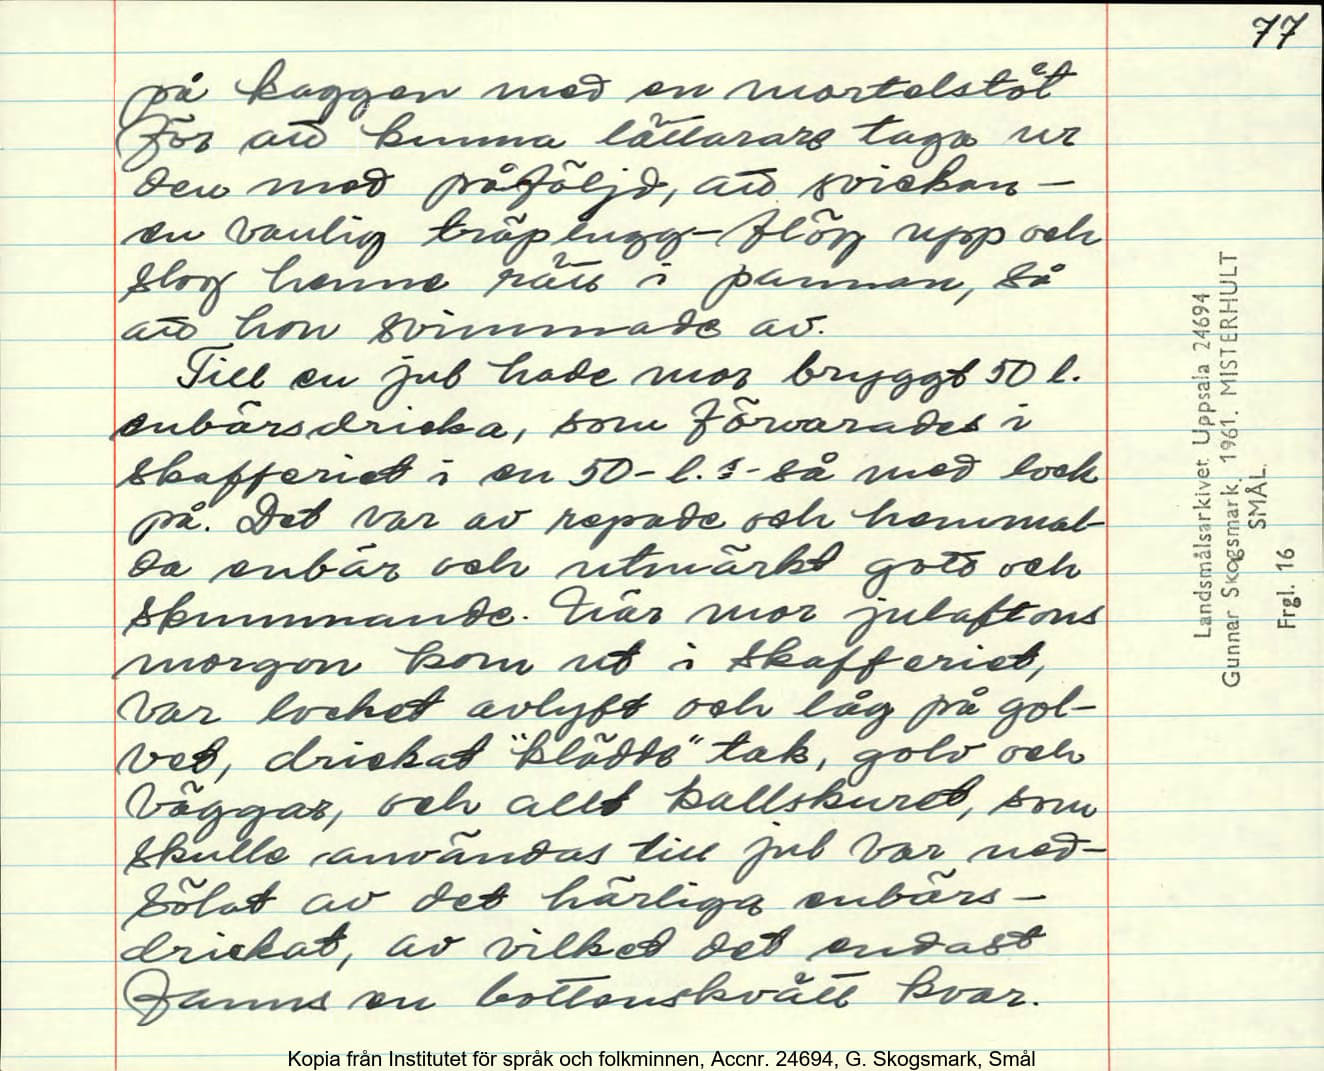 77
på kaggen med en mortelstöt
för att kunna lättarare taga ur
den med påföljd, att svickan -
en vanlig träplugg - flög upp och
slog henne rätt i pannan, så
att hon svimmade av.
Till en jul hade mor bryggt 50 l.
enbärsdricka, som förvarades i
skafferiet i en 50-l.s-så med lock
på. Det var av repade och hemmal-
da enbär och utmärkt gott och
skummande. När mor julaftons
morgon kom ut i skafferiet,
var locket avlyft och låg på gol-
vet, drickat "klädde" tak, golv och
väggar, och allt kallskuret, som
skulle användas till jul var ned-
sölat av det härliga enbärs-
drickat, av vilket det endast
fanns en bottenskvätt kvar.
Landsmålsarkivet Uppsala 24694
Gunnar Skogsmark. 1961. MISTERHULT
SMÅL.
Frgl. 16
Kopia från Institutet för språk och folkminnen, Accnr. 24694, G. Skogsmark, Smål